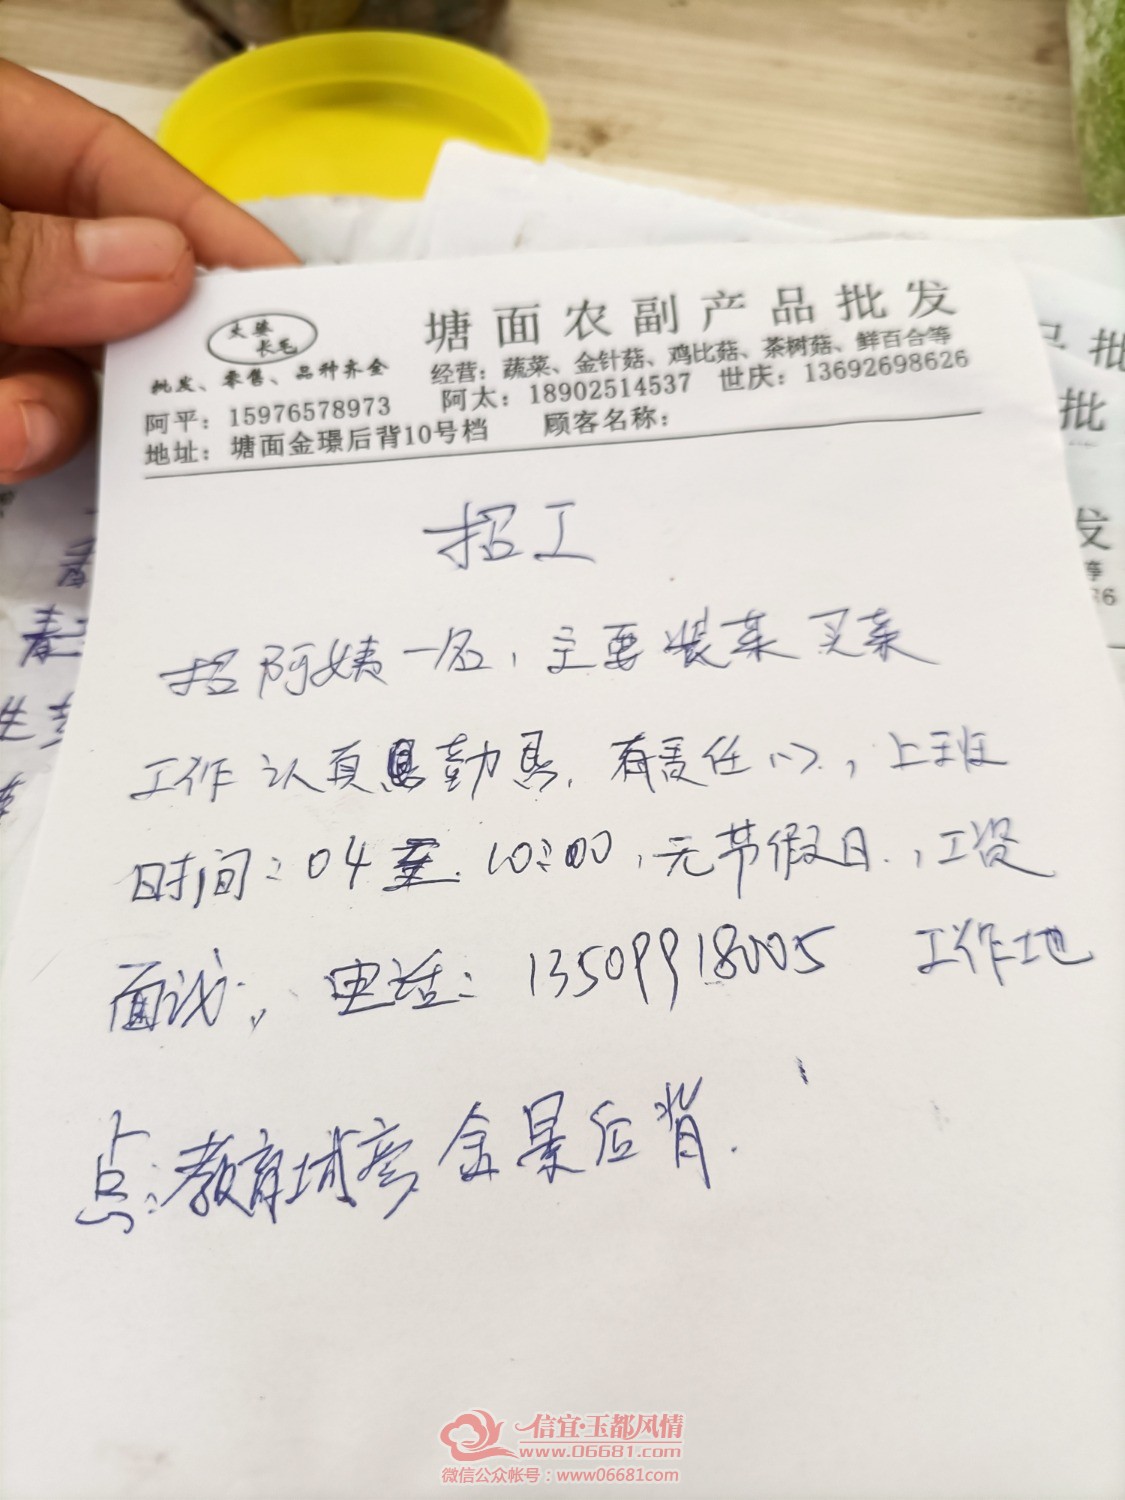 大葵
长毛
批发、零售、品种齐全
塘面农副产品批发
经营：蔬菜、金针菇、鸡比菇、茶树菇、鲜百合等
阿平：15976578973 阿太：18902514537 世庆：13692698626
地址：塘面金璟后背10号档 顾客名称：
招工
招阿姨一名，主要装菜买菜
工作认真勤快，有责任心，上班
时间：04至10:00，无节假日，工资
面试，电话：13509918005 工作地
点：教育城旁金景后背.
批
批
发
等
信宜·玉都风情
www.06681.com
微信公众帐号：www06681com